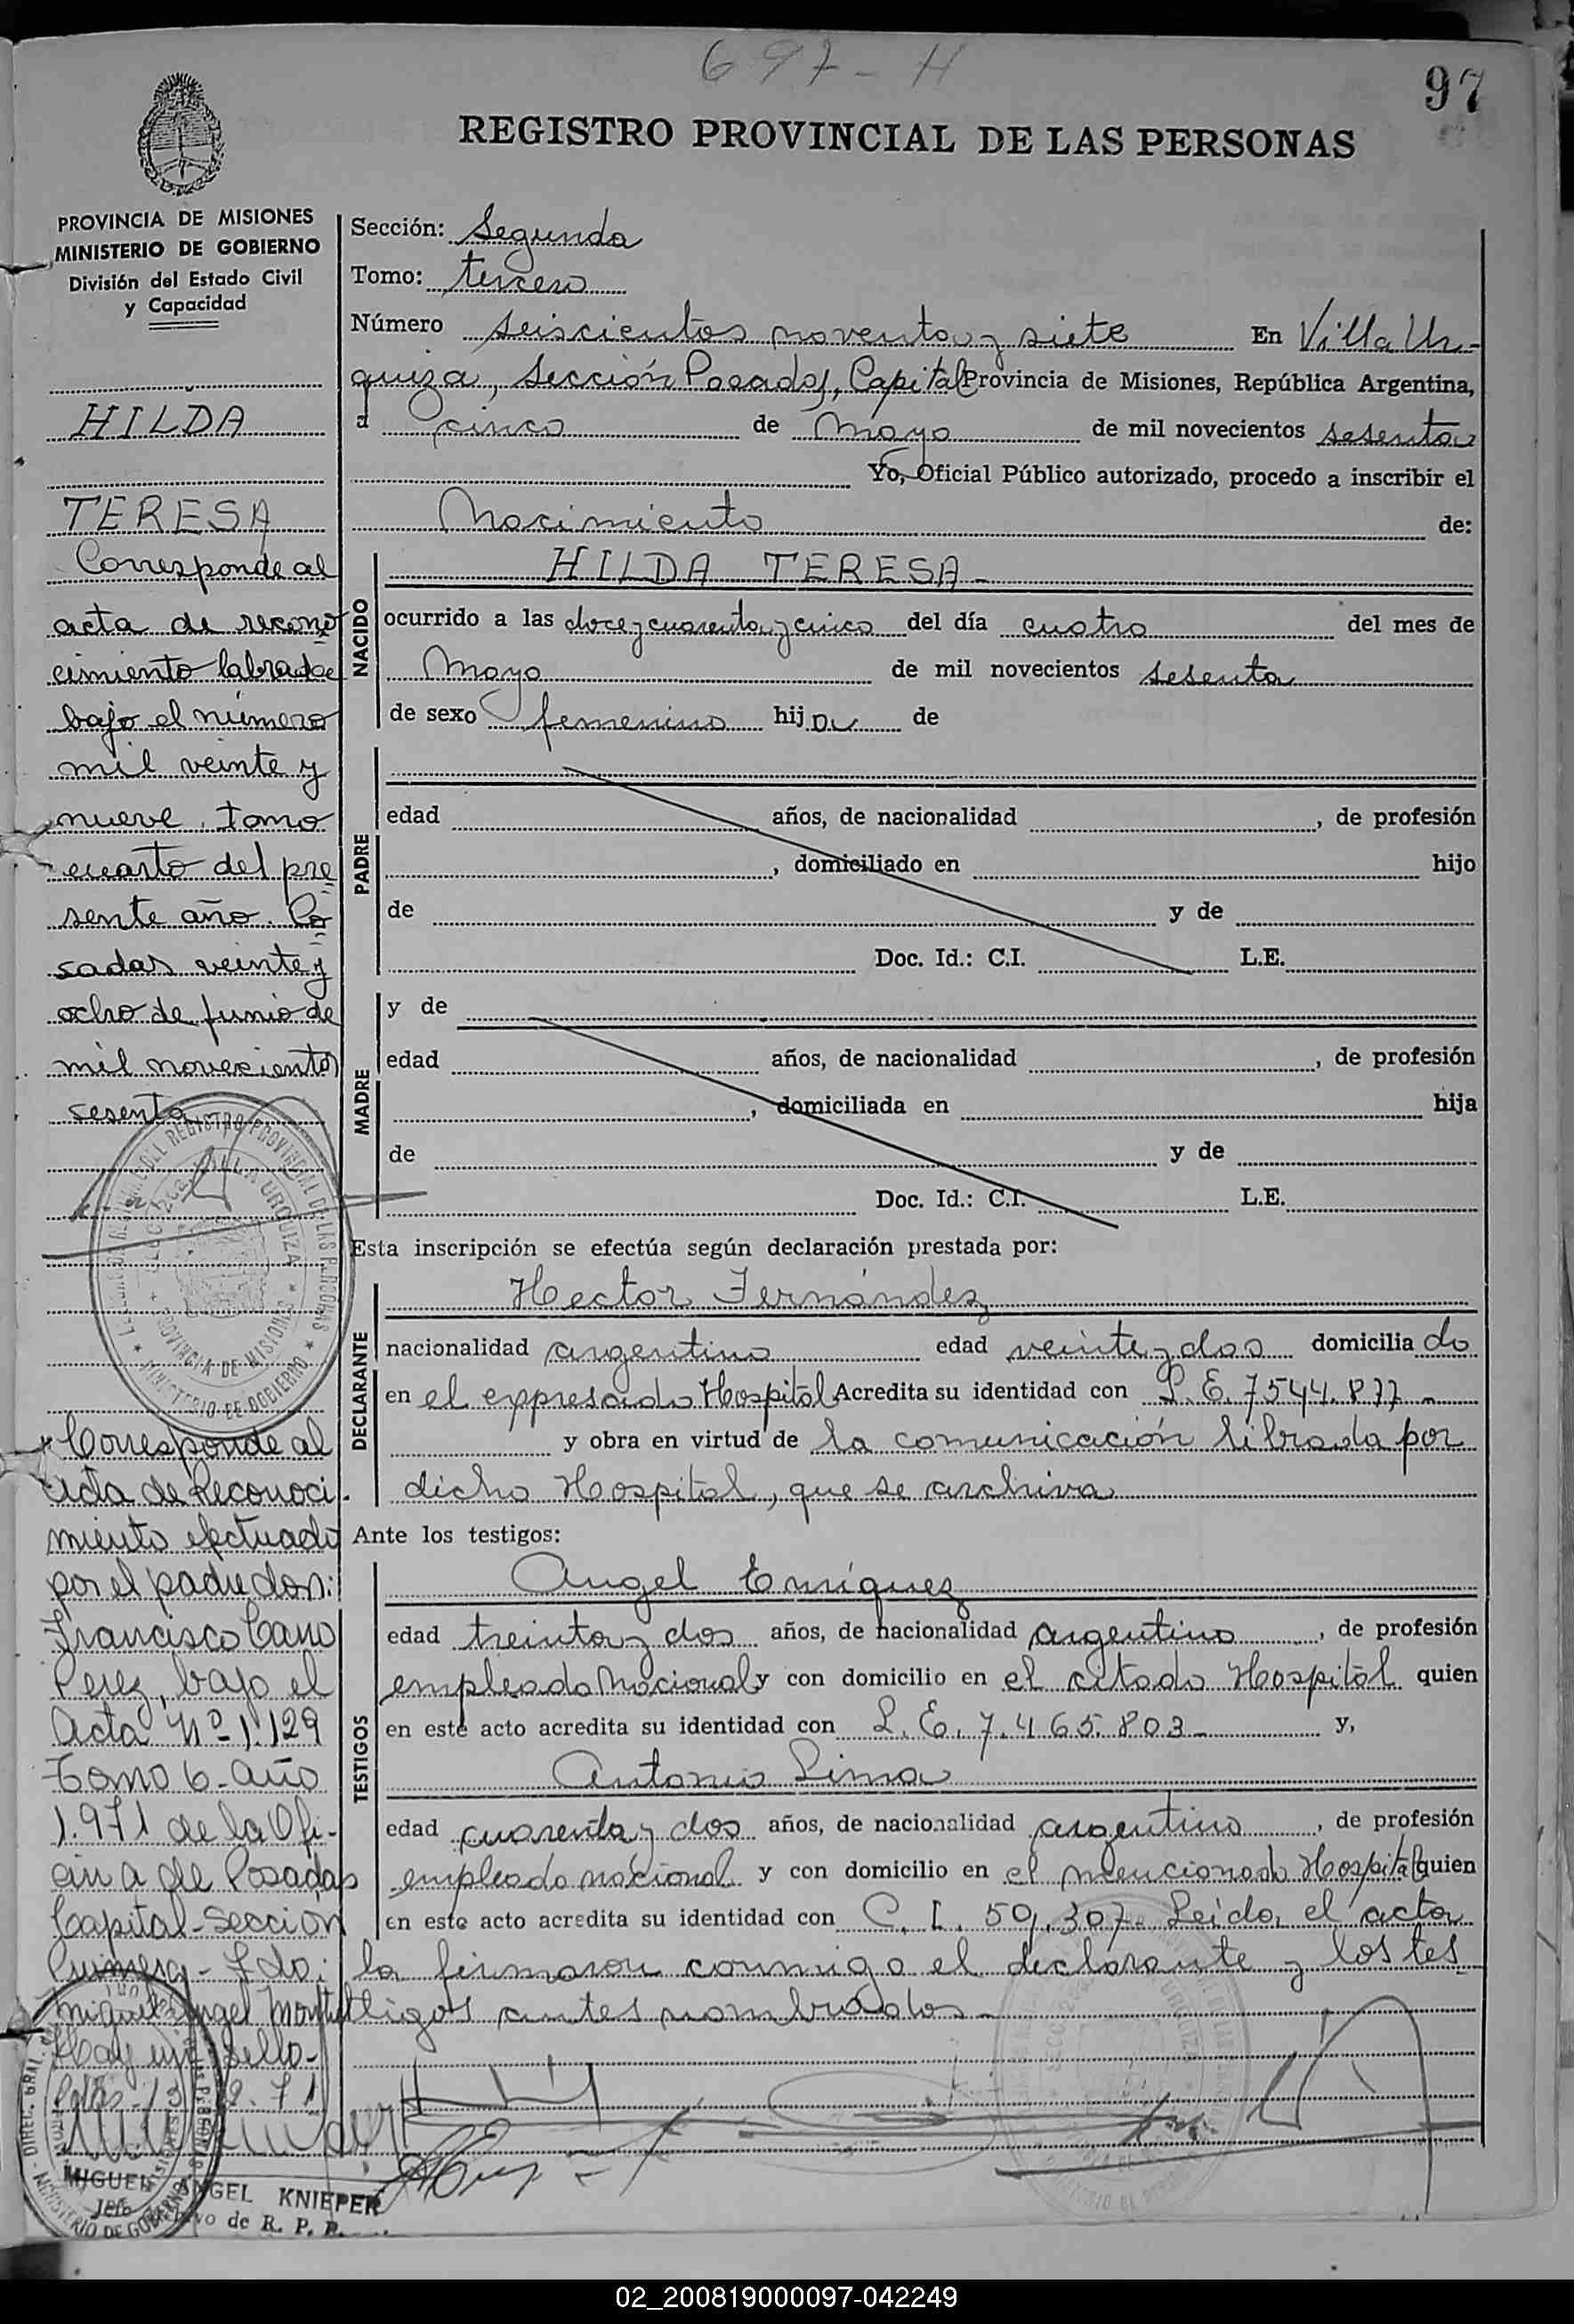 697-H
97
REGISTRO PROVINCIAL DE LAS PERSONAS
PROVINCIA DE MISIONES
MINISTERIO DE GOBIERNO
División del Estado Civil
y Capacidad
HILDA
TERESA
Corresponde al
acta de recono
cimiento labrada
bajo el número
mil veinte y
nueve, tomo
cuarto del pre
sente año. Po
sadas veinte y
ocho de junio de
mil novecientos
sesenta
REGISTRO PROVINCIAL DE LAS PERSONAS
VILLA URQUIZA
PROVINCIA DE MISIONES
MINISTERIO DE GOBIERNO
Corresponde al
acta de Reconoci-
miento efectuado
por el padre don:
Francisco Cano
Perez, bajo el
Acta Nº 1.129
Tomo 6 - año
1.971 de la Ofi-
cina de Posadas
Capital - Seccion
Primera - Fdo:
Miguel Angel
Hay un sello -
MIGUEL ANGEL KNIEPER
Jefe de R. P. P.
Sección: Segunda
Tomo: tercero
Número seiscientos noventa y siete En Villa Ur-
quiza, Sección Posadas, Capital Provincia de Misiones, República Argentina,
a cinco de Mayo de mil novecientos sesenta
Yo, Oficial Público autorizado, procedo a inscribir el
Nacimiento de:
NACIDO
HILDA TERESA -
ocurrido a las doce y cuarenta y cinco del día cuatro del mes de
Mayo de mil novecientos sesenta
de sexo femenino hija de
PADRE
edad años, de nacionalidad , de profesión
, domiciliado en hijo
de y de
Doc. Id.: C.I. L.E.
MADRE
y de
edad años, de nacionalidad , de profesión
, domiciliada en hija
de y de
Doc. Id.: C.I. L.E.
Esta inscripción se efectúa según declaración prestada por:
DECLARANTE
Hector Fernández
nacionalidad argentino edad veinte y dos domiciliado
en el expresado Hospital Acredita su identidad con L.E. 7544.877 -
y obra en virtud de la comunicación librada por
dicho Hospital, que se archiva
Ante los testigos:
TESTIGOS
Angel Enríquez
edad treinta y dos años, de nacionalidad argentino, de profesión
empleado Nacional y con domicilio en el citado Hospital quien
en este acto acredita su identidad con L.E. 7.465.803 - y,
Antonio Lima
edad cuarenta y dos años, de nacionalidad argentino, de profesión
empleado nacional y con domicilio en el mencionado Hospital quien
en este acto acredita su identidad con C. I. 59.307. Leída el acta
la firmaron conmigo el declarante y los tes
tigos antes nombrados -
02_200819000097-042249